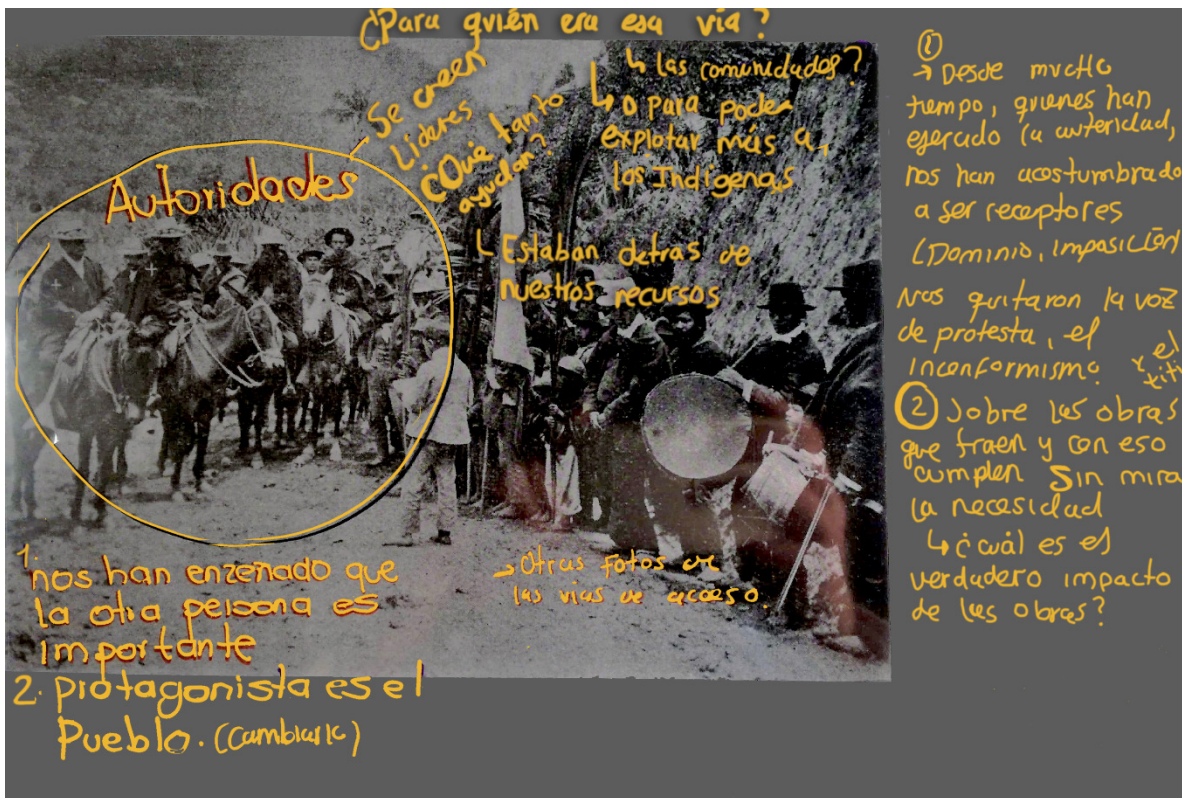 ¿Para quién era esa vía?
↳ las comunidades?
↳ o para poder
explotar más a
los Indígenas
Se creen
Lideres
¿Que tanto
ayudan?
Autoridades
↳ Estaban detras de
nuestros recursos
1.
nos han enzeñado que
la otra persona es
importante
2. protagonista es el
Pueblo. (Cambiarlo)
→ Otras fotos de
las vias de acceso.
①
→ Desde mucho
tiempo, quienes han
ejercido la autoridad,
nos han acostumbrado
a ser receptores
(Dominio, imposición
Nos quitaron la voz
de protesta, el
inconformismo.
y el
② Sobre las obras
que traen y con eso
cumplen sin mira
la necesidad
↳ ¿cuál es el
verdadero impacto
de las obras?